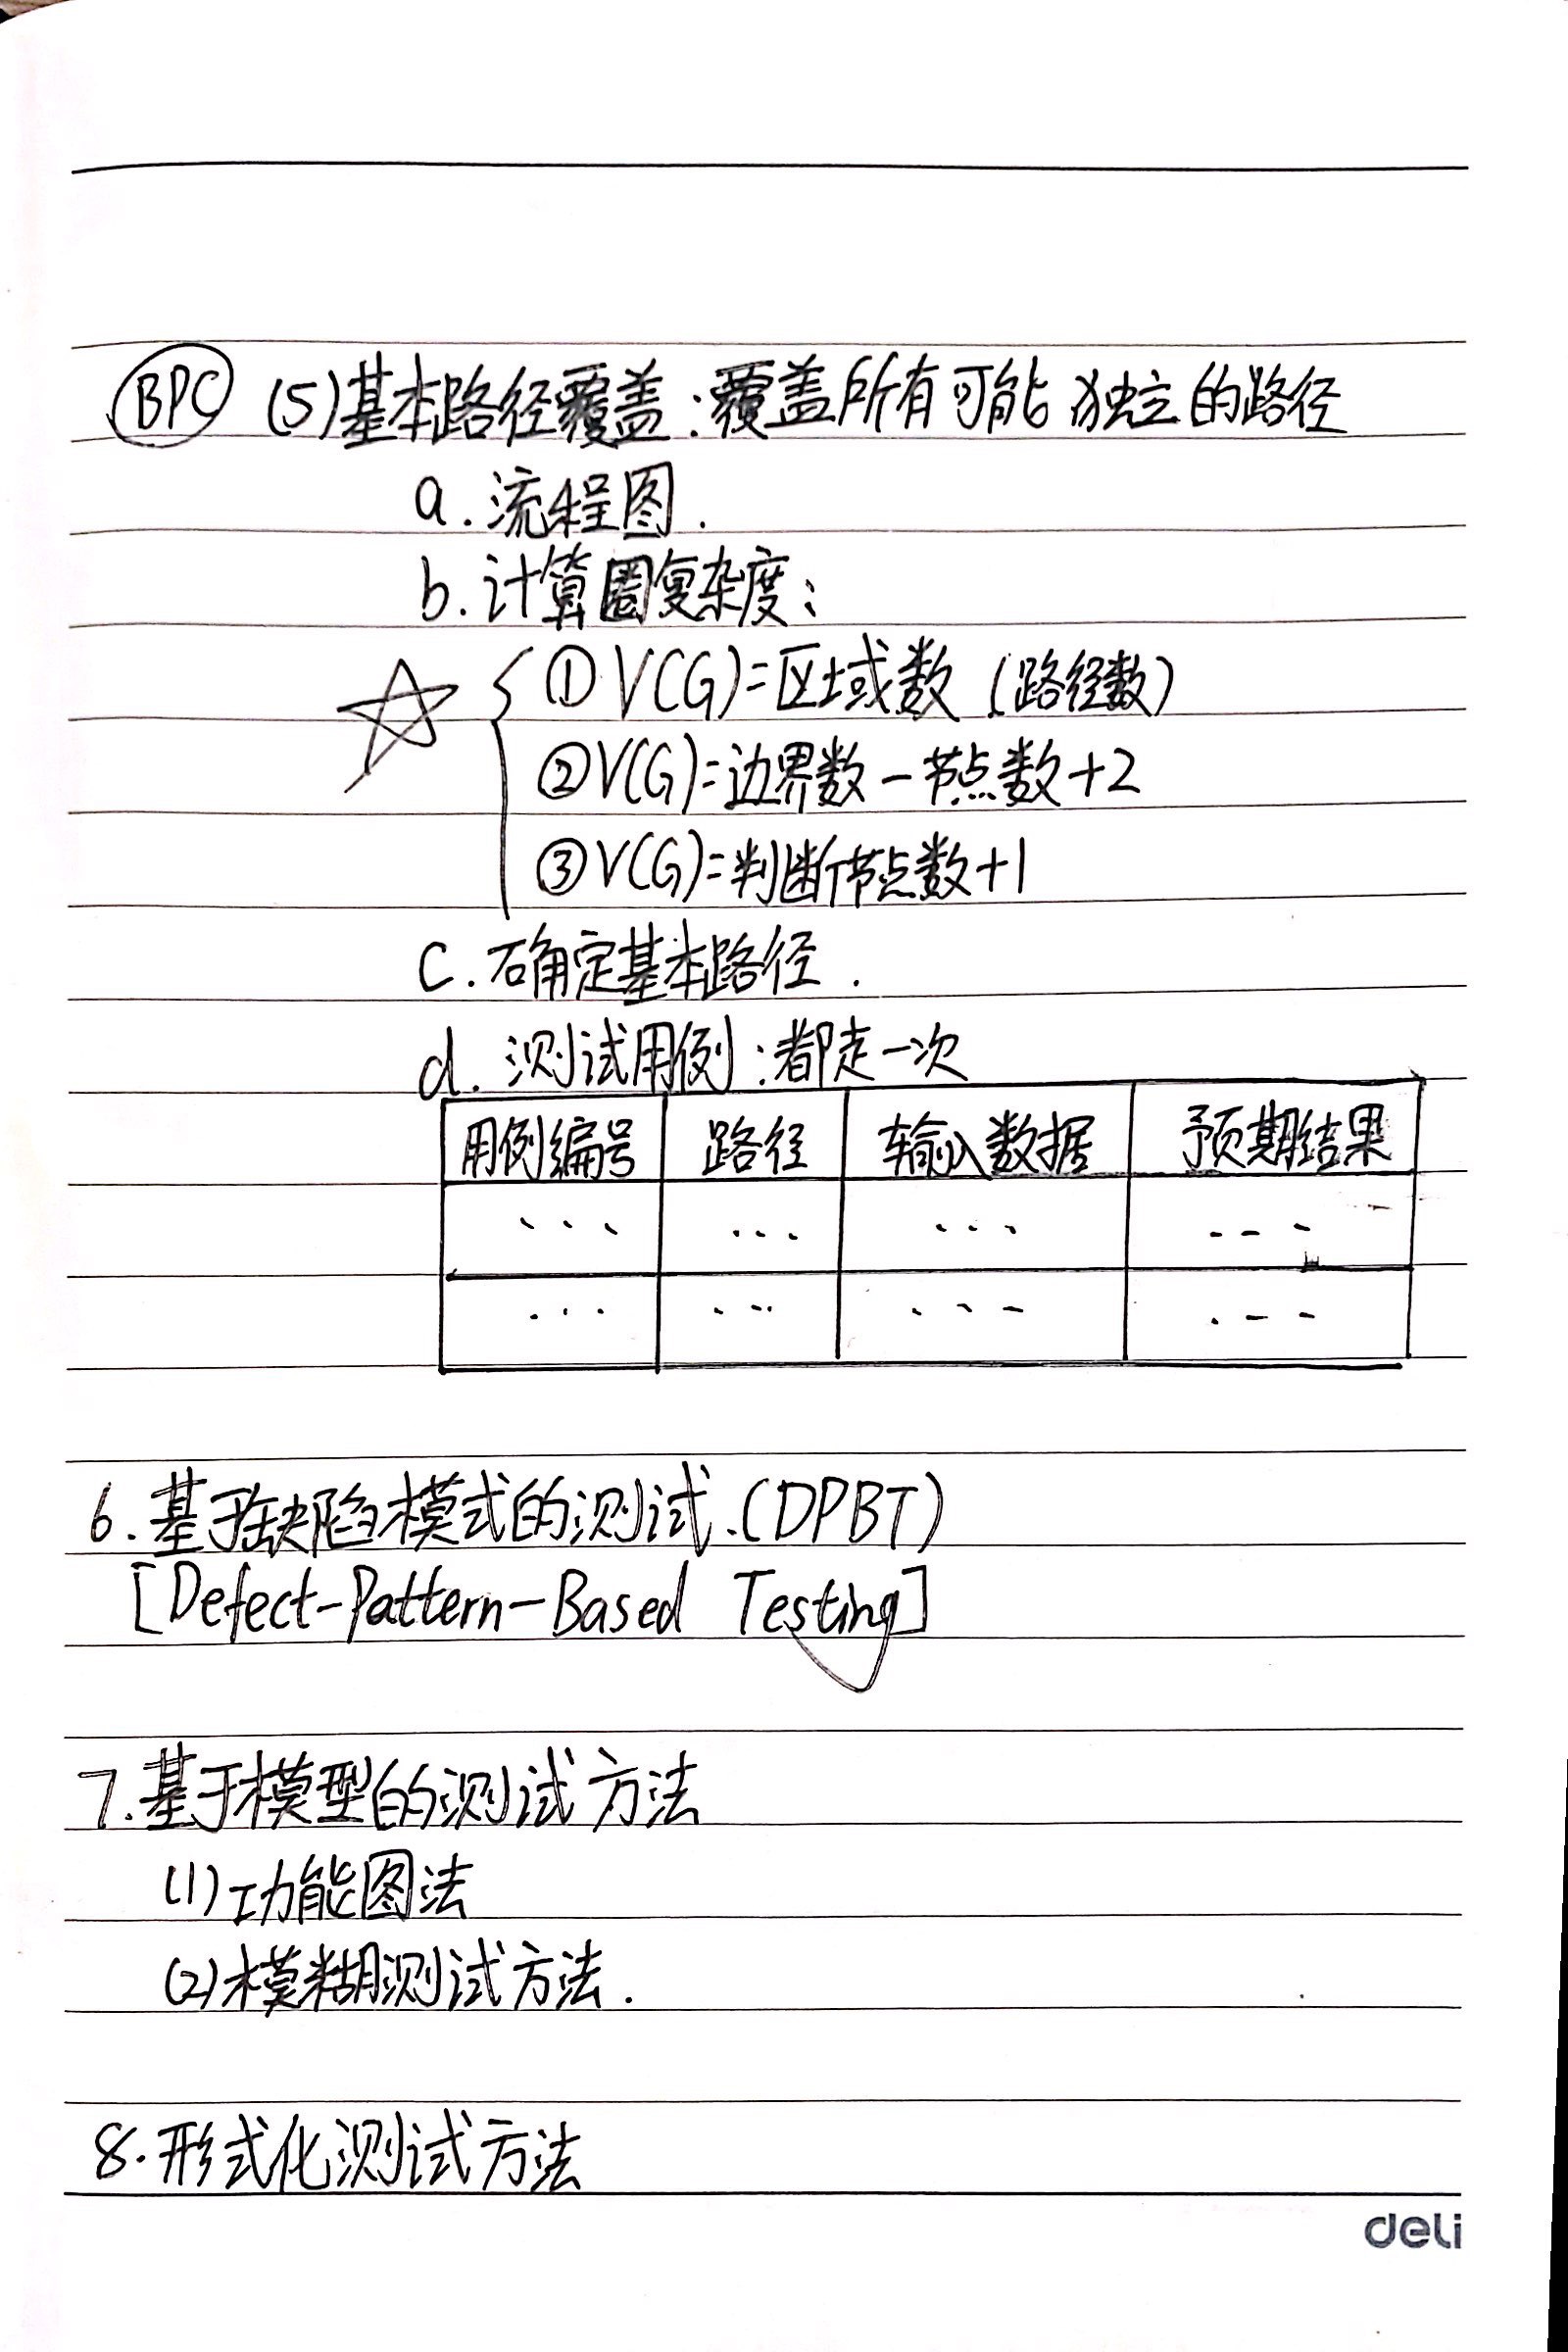 BPC (5)基本路径覆盖:覆盖所有可能独立的路径
a.流程图.
b.计算圈复杂度:
①V(G)=区域数(路径数)
②V(G)=边界数-节点数+2
③V(G)=判断节点数+1
c.确定基本路径.
d.测试用例:都走一次
用例编号 路径 输入数据 预期结果
... ... ... ---
... ... ... ---
6.基于缺陷模式的测试.(DPBT)
[Defect-Pattern-Based Testing]
7.基于模型的测试方法
(1)功能图法
(2)模糊测试方法.
8.形式化测试方法
deli